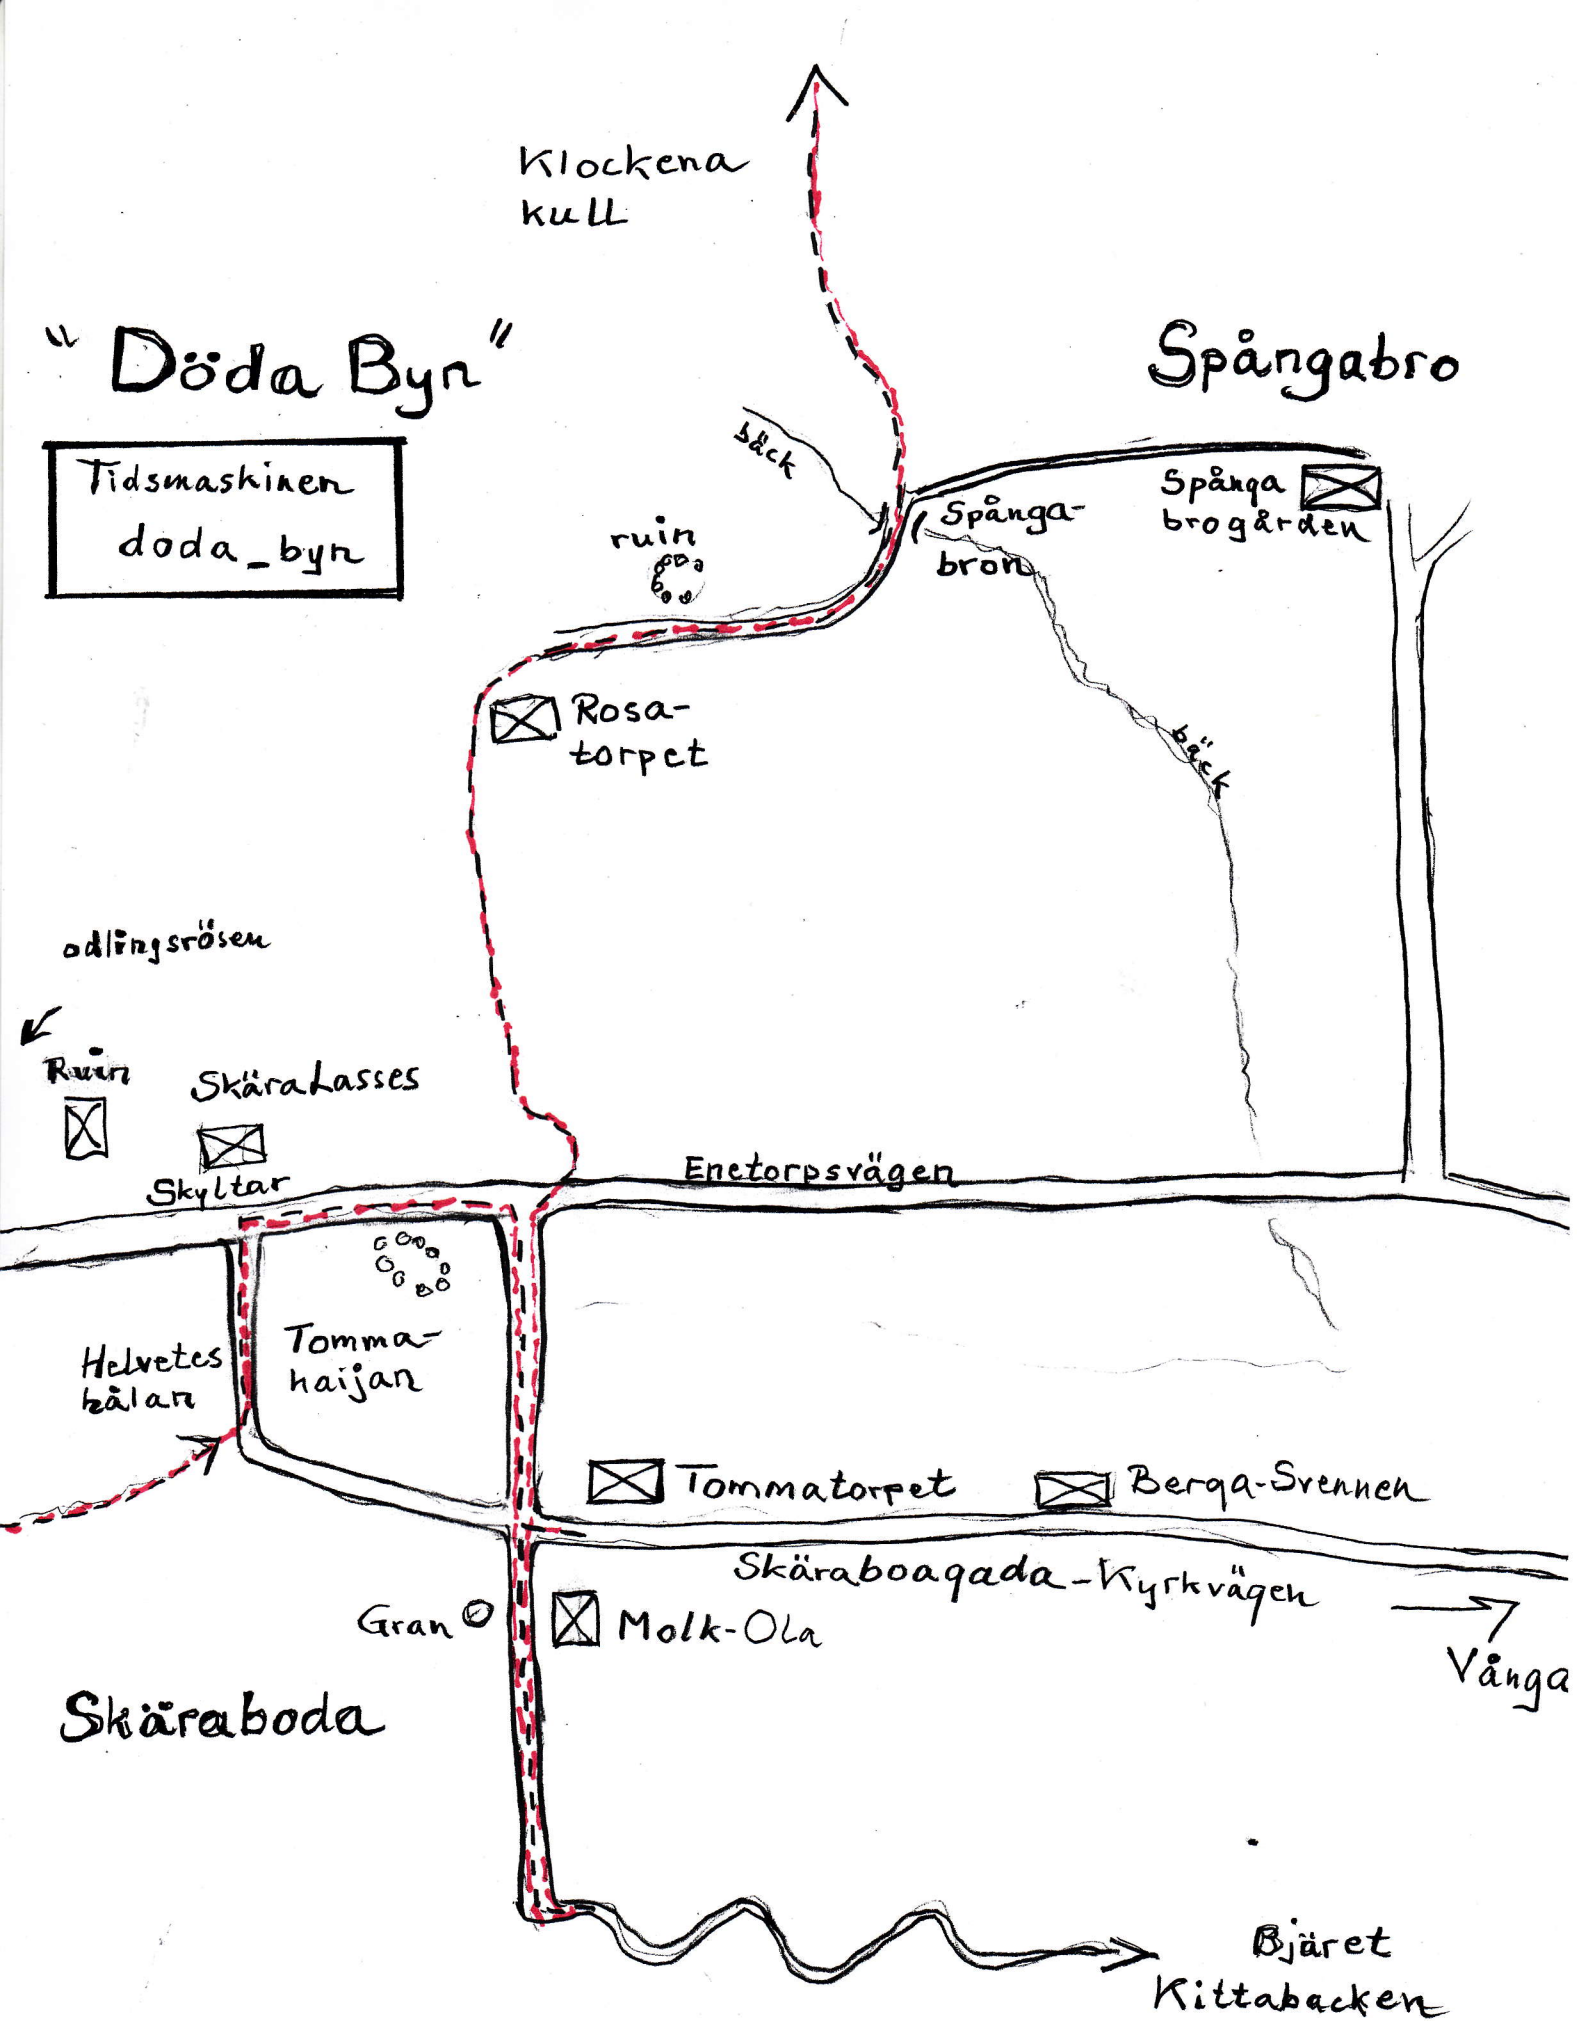 Klockena
kull
"Döda Byn"
Spångabro
Tidsmaskinen
doda_byn
bäck
ruin
Spånga-
bron
Spånga
brogården
Rosa-
torpet
bäck
odlingsrösen
Ruin
SkäraLasses
Skyltar
Enetorpsvägen
Helvetes
hålan
Tomma-
haijan
Tommatorpet
Berga-Svennen
Skäraboagada-Kyrkvägen
Gran
Molk-Ola
Vånga
Skäraboda
Bjäret
Kittabacken